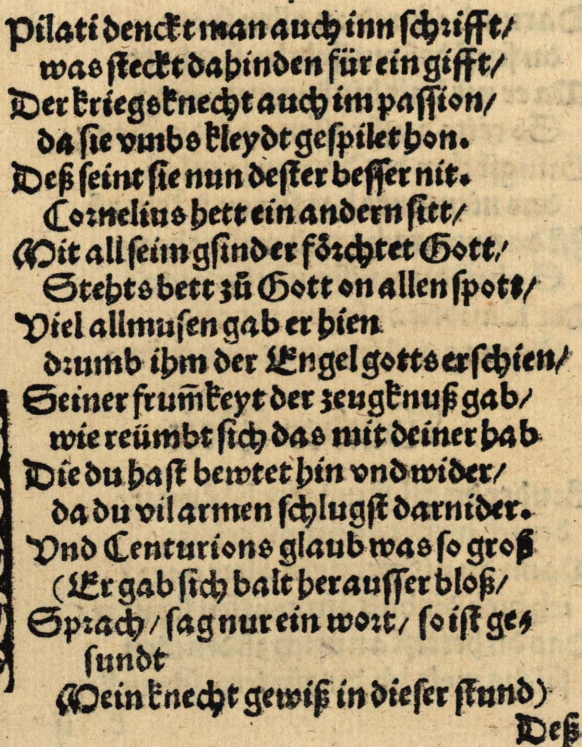 Pilati denckt man auch inn schrifft/
was steckt dahinden für ein gifft/
Der kriegsknecht auch im passion/
da sie vmbs kleydt gespilet hon.
Deß seint sie nun dester besser nit.
Cornelius hett ein andern sitt/
Mit all seim gsind er förchtet Gott/
Stehts bett zů Gott on allen spott/
Viel allmusen gab er hien
drumb ihm der Engel gotts erschien/
Seiner frum̄keyt der zeugknuß gab/
wie reümbt sich das mit deiner hab
Die du hast bewtet hin vnd wider/
da du vil armen schlugst darnider.
Vnd Centurions glaub was so groß
(Er gab sich balt herausser bloß/
Sprach/ sag nur ein wort/ so ist ge⸗
sundt
Mein knecht gewiß in dieser stund)
Deß